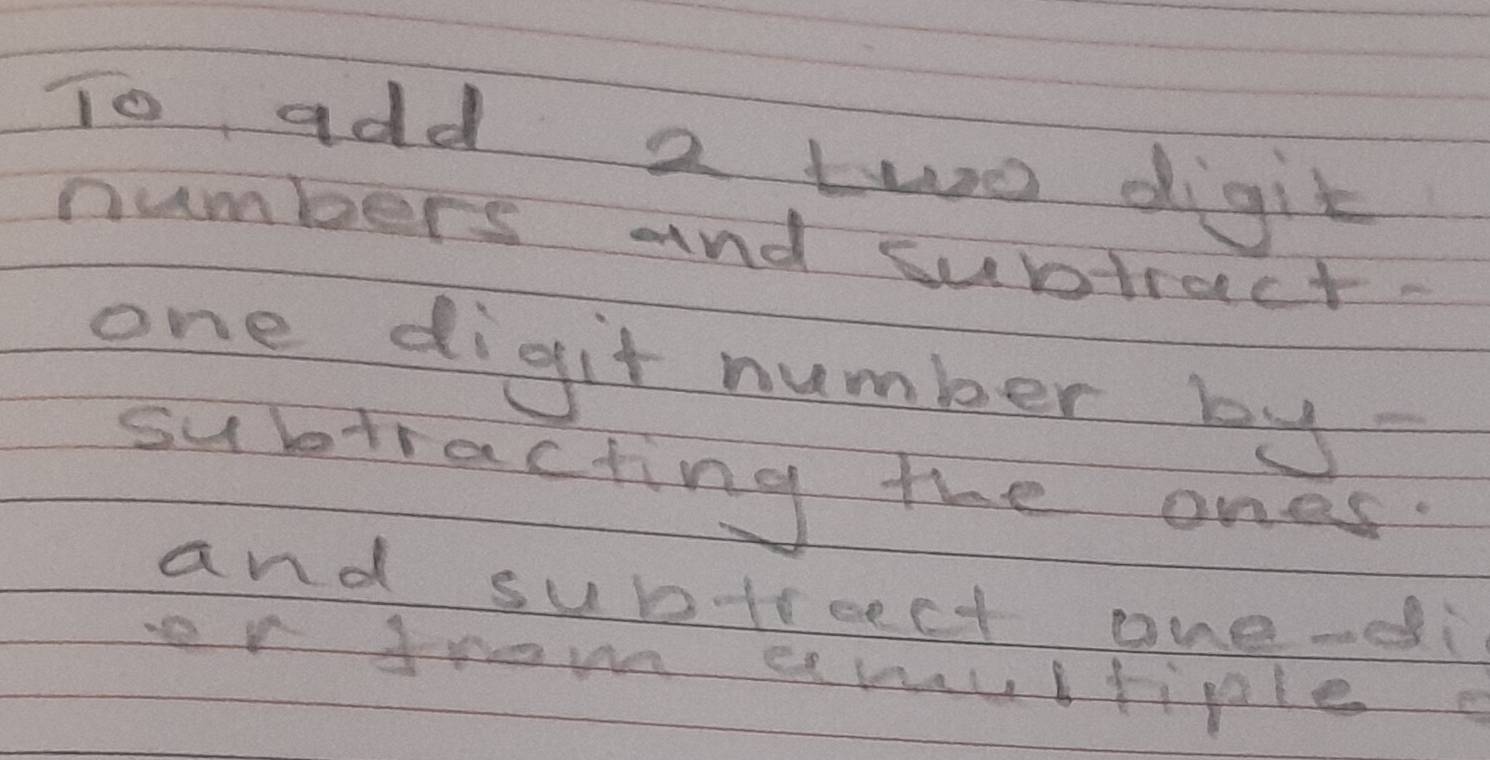 To add 2 two digit
numbers and subtract-
one digit number by-
subtracting the ones.
and subtract one-di
er from a multiple